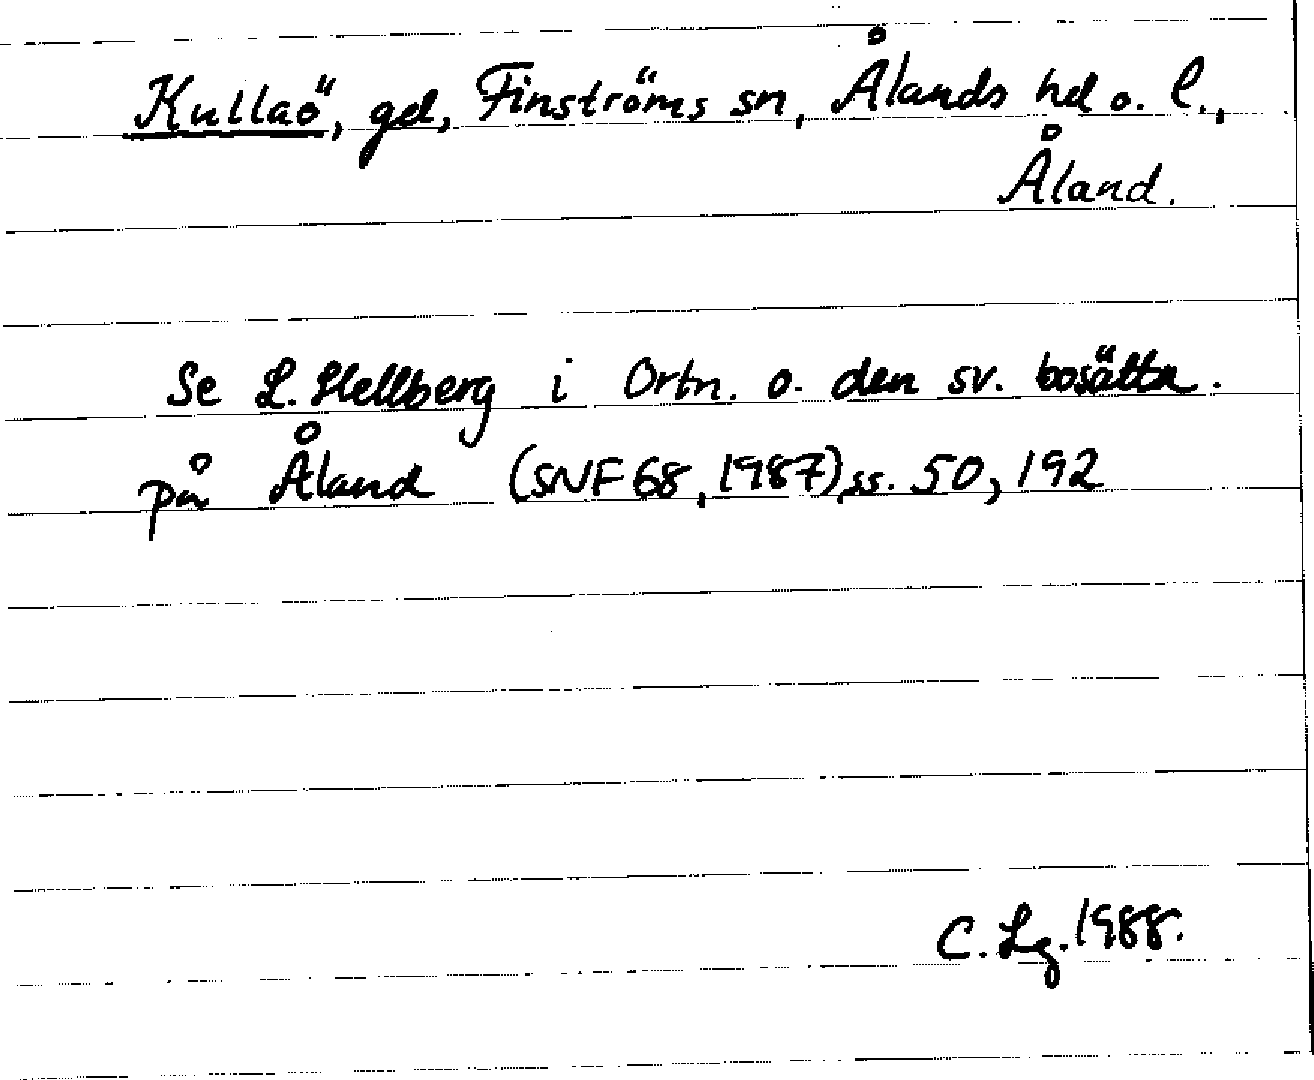 Kullaö, gd, Finströms sn, Ålands hd o. l.,
Åland.
Se L. Hellberg i Ortn. o. den sv. bosättn.
på Åland (SNF 68, 1987) ss. 50, 192
C. Lg. 1988.